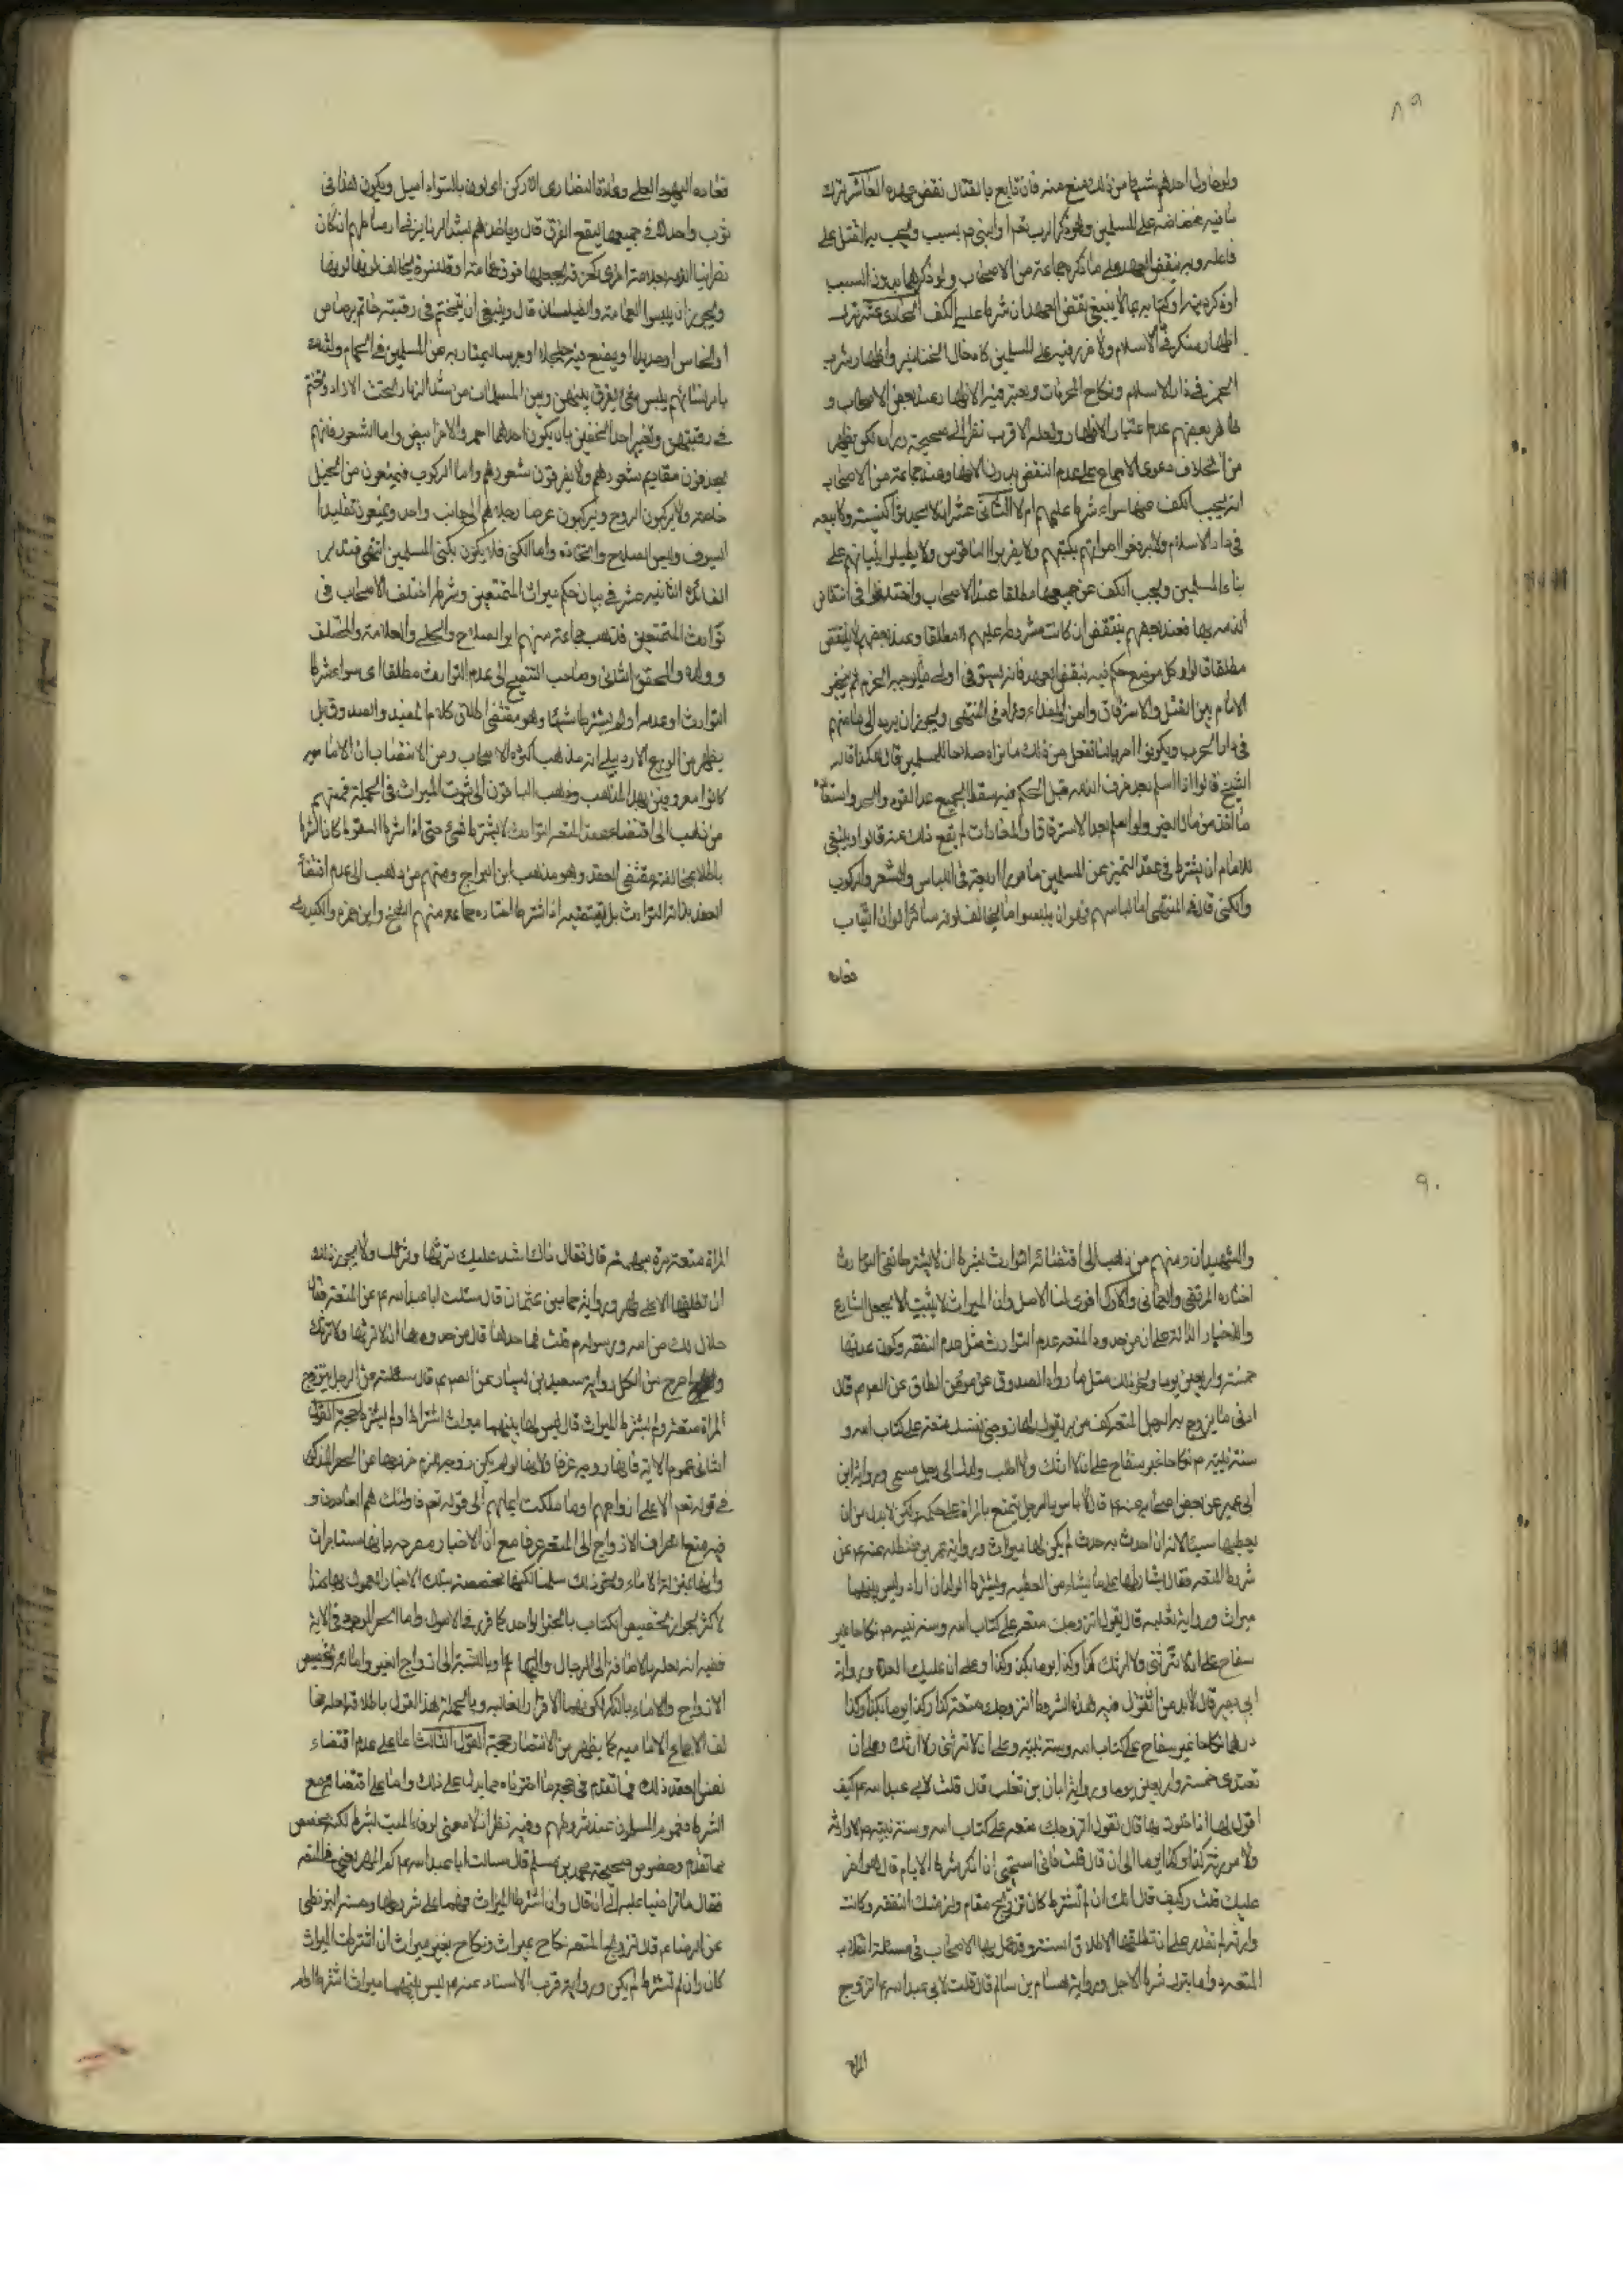 ٨٩
ولو حاول احدهم شيئا من ذلك منع منه فان قابع بالقتال نقض عهده العاشر ترك
ما فيه غضاضة على المسلمين وهو ذكر الرب تعم او النبي ص بسبب ويجب به القتل على
فاعله وبه ينقض العهد على ما ذكره جماعة من الاصحاب ولو ذكرهما بدون السبب
او ذكر دينه او كتابه بما لا ينبغي نقض العهد ان شرط عليه الكف الحادي عشر ترك
اظهار منكر في الاسلام ولا ضرر فيه على المسلمين كادخال الخنازير واظهار شرب
الخمر في دار الاسلام ونكاح المحرمات ويعتبر فيه الاظهار عند بعض الاصحاب و
ظاهر بعضهم عدم اعتبار الاظهار ولعله الاقرب نظرا الى صحيحة زراره لكن يظهر
من الخلاف دعوى الاجماع على عدم النقض بدون الاظهار وعند جماعة من الاصحاب
انه يجب الكف عنها سواء شرط عليهم ام لا الثاني عشر ان لا يحدثوا كنيسة ولا بيعه
في دار الاسلام ولا يرفعوا اصواتهم بكتبهم ولا يضربوا الناقوس ولا يطيلوا بنيانهم على
بناء المسلمين ويجب الكف عن جميعها مطلقا عند الاصحاب واختلفوا في انتقاض
الذمه بها فعند بعضهم ينتقض ان كانت مشروطه عليهم لا مطلقا وعند بعضهم لا ينتقض
مطلقا قالوا وكل موضع حكم فيه بنقض العهد فانه يستوفى اولا ما يوجبه الجرم ثم يتخير
الامام بين القتل والاسترقاق والمن والفداء وزاد في المنتهى ويجوز ان يرده الى مامنهم
في دار الحرب ويكونوا حربا لنا فنفعل من ذلك ما يراه صلاحا للمسلمين قال هكذا قاله
الشيخ قالوا اذا اسلم بعد خرق الذمه قبل الحكم فيه سقط الجميع عدا القود والحد واستعاده
ما اخذ من مال الغير ولو اسلم بعد الاسترقاق والمفادات لم يقع ذلك عنه قالوا وينبغي
للامام ان يشترط في عقد التميز عن المسلمين بامور اربعة في اللباس والشعر والركوب
والكنى قال في المنتهى اما لباسهم فهو ان يلبسوا ما يخالف لونه سائر الوان الثياب
فعاده
فعاده اليهود العسلي وعادة النصارى الادكن اى لون بالسواد اميل ويكون هذا في
ثوب واحد لا في جميعها ليقع الفرق قال وياخذهم بشد الزنانير في اوساطهم ان كان
نصرانيا
ويجوز ان يلبسوا العمامة والطيلسان قال وينبغي ان يتختم في رقبته خاتم رصاص
او نحاس او حديد او يضع فيه جلجلا او جرسا ليمتاز به عن المسلمين في الحمام ولذلك
يامر نسائهم بلبس شئ يفرق بينهن وبين المسلمات من شد الزنار تحت الازار وتختم
في رقبتهن وتغير احد الخفين بان يكون احدهما احمر والاخر ابيض واما الشعور فانهم
يحذفون مقاديم شعورهم ولا يفرقون شعورهم واما الركوب فيمنعون من الخيل
خاصه ولا يركبون السروج ويركبون عرضا رجلاهم الى جانب واحد ويمنعون تقليد
السيوف ولبس السلاح واتخاذه واما الكنى فلا يكون بكنى المسلمين انتهى فتدبر
الفائدة الثانيه عشر في بيان حكم ميراث المتمتعين وشرطه اختلف الاصحاب في
توارث المتمتعين فذهب جماعة منهم ابو الصلاح والحلي والعلامة في المختلف
وولده والمحقق الثاني وصاحب التنقيح الى عدم التوارث مطلقا اى سواء شرطا
التوارث او عدمه او لم يشترطا شيئا وهو مقتضى اطلاق كلام المفيد والصدوق بل
يظهر من الاردبيلي انه مذهب اكثر الاصحاب ومن الانتصار ان الاماميه
كانوا معروفين بهذا المذهب وذهب الباقون الى ثبوت الميراث في الجملة فمنهم
من ذهب الى اقتضاء عقد المتعه التوارث لا بشرط شئ حتى اذا شرطا السقوط كان الشرط
باطلا لمخالفته مقتضى العقد وهو مذهب ابن البراج ومنهم من ذهب الى عدم اقتضاء
العقد بذاته التوارث بل يقتضيه اذا اشترط اختاره جماعه منهم الشيخ وابن حمزه والكيدري
٩٠
والشهيدان ومنهم من ذهب الى اقتضائه التوارث بشرط ان لا يشترط نفي التوارث
اختاره المرتضى والعماني والاول اقوى لنا الاصل وان الميراث لا يثبت الا بجعل الشارع
والاخبار الدالة على ان من حدود المتعه عدم التوارث مثل عدم النفقه وكون عدتها
خمسة واربعين يوما ونحو ذلك مثل ما رواه الصدوق عن مؤمن الطاق عن الصم قال
ادنى ما يتزوج به الرجل المتعه كف من بر يقول لها زوجيني نفسك متعة على كتاب الله و
سنة نبيه ص نكاحا غير سفاح على ان لا ارثك ولا اطلب ولدك الى اجل مسمى ورواية ابن
ابي عمير عن بعض اصحابه عنه ع قال لا باس بالرجل يتمتع بالمرأة على حكمه لكن لا بد له من ان
يعطيها شيئا لانه ان احدث به حدث لم يكن لها ميراث ورواية عمر بن حنظله عنه ع عن
شروط المتعه فقال يشارطها على ما يشاء من العطيه ويشترط الولد ان اراد وليس بينهما
ميراث ورواية ثعلبه قال يقول اتزوجك متعه على كتاب الله وسنة نبيه ص نكاحا غير
سفاح على ان لا ترثني ولا ارثك كذا وكذا يوما بكذا وكذا وعلى ان عليك العدة ورواية
ابي بصير قال لا بد من ان تقول فيه هذه الشروط اتزوجك متعة كذا وكذا يوما بكذا وكذا
درهما نكاحا غير سفاح على كتاب الله وسنة نبيه وعلى ان لا ترثني ولا ارثك وعلى ان
تعتدى خمسة واربعين يوما ورواية ابان بن تغلب قال قلت لابي عبد الله ع كيف
اقول لها اذا خلوت بها قال تقول اتزوجك متعه على كتاب الله وسنة نبيه ص لا وارثه
ولا موروثه كذا وكذا يوما الى ان قال قلت فاني استحيي ان اذكر شرط الايام قال هو اضر
عليك قلت وكيف قال انك ان لم تشترط كان تزويج مقام ولزمتك النفقه وكانت
وارثه لم تقدر على ان تطلقها الا طلاق السنة وقد عمل بها الاصحاب في مسئلة انقلاب
المتعه دواما بترك شرط الاجل ورواية هشام بن سالم قال قلت لابي عبد الله ع اتزوج
المرأة
المراة متعة مرة مبهمه قال فقال ذاك اشد عليك ترثها وترثك ولا يجوز لك
ان تطلقها الا على طهر ورواية قال سئلت ابا عبد الله ع عن المتعه فقال
حلال لك من الله ورسوله ص قلت فما حدها قال من حدودها ان لا ترثها ولا ترثك
واصرح من الكل رواية سعيد بن يسار عن الصم ع قال سئلته عن الرجل يتزوج
المراة متعة ولم يشترط الميراث قال ليس بينهما ميراث اشترط او لم يشترط حجة القول
الثاني عموم الاية فانها زوجه عرفا ولانها لو لم يكن زوجه لزم خروجها عن الحصر المذكور
في قوله تعم الا على ازواجهم او ما ملكت ايمانهم الى قوله تعم فاولئك هم العادون و
فيه منع انصراف الازواج الى المتعه عرفا مع ان الاخبار مصرحه بانها مستاجرات
وانها بمنزلة الاماء ونحو ذلك سلمنا لكنها مخصصة بتلك الاخبار المعمول بها عند
الاكثر لجواز تخصيص الكتاب بالخبر الواحد كما قرر في الاصول واما الحصر الموجود في الاية
ففيه انه لعله بالاضافة الى الرجال والبهائم او بالنسبة الى ازواج الغير وامائه وتخصيص
الازواج والاماء بالذكر لكونهما الافراد الغالبه وبالجملة هذا القول باطلاقه لعله مخا
لف لاجماع الاماميه كما يظهر من الانتصار حجة القول الثالث اما على عدم اقتضاء
نفس العقد ذلك فما تقدم في حجة ما اخترناه مما يدل على ذلك واما على اقتضائه مع
الشرط فعموم المسلمون عند شروطهم وفيه نظر اذ لا معنى لوفاء الميت لشرط لكنه مخصص
بما تقدم وخصوص صحيحة محمد بن مسلم قال سالت ابا عبد الله ع كم المهر يعني في المتعه
فقال ما تراضيا عليه الى ان قال وان اشترطا الميراث فهما على شرطهما وحسنة البزنطي
عن الرضا ع قال تزويج المتعه نكاح بميراث ونكاح بغير ميراث ان اشترطت الميراث
كان وان لم تشترط لم يكن ورواية قرب الاسناد عنه ع ليس بينهما ميراث اشترط او لم